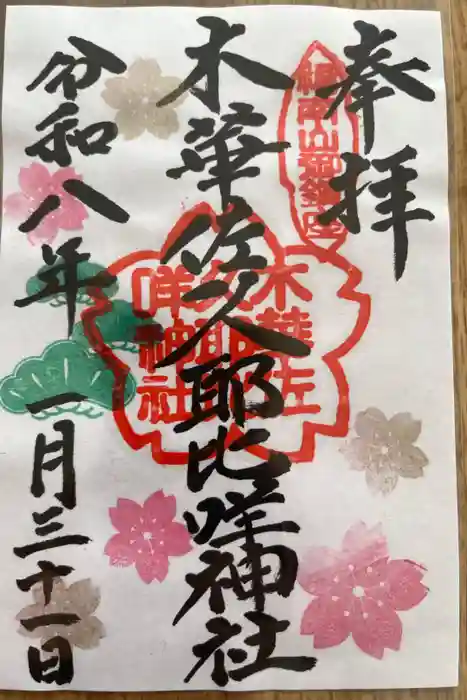 奉拝
木華佐久耶比咩神社
木華佐
久耶比
咩神社
令和八年
一月三十一日